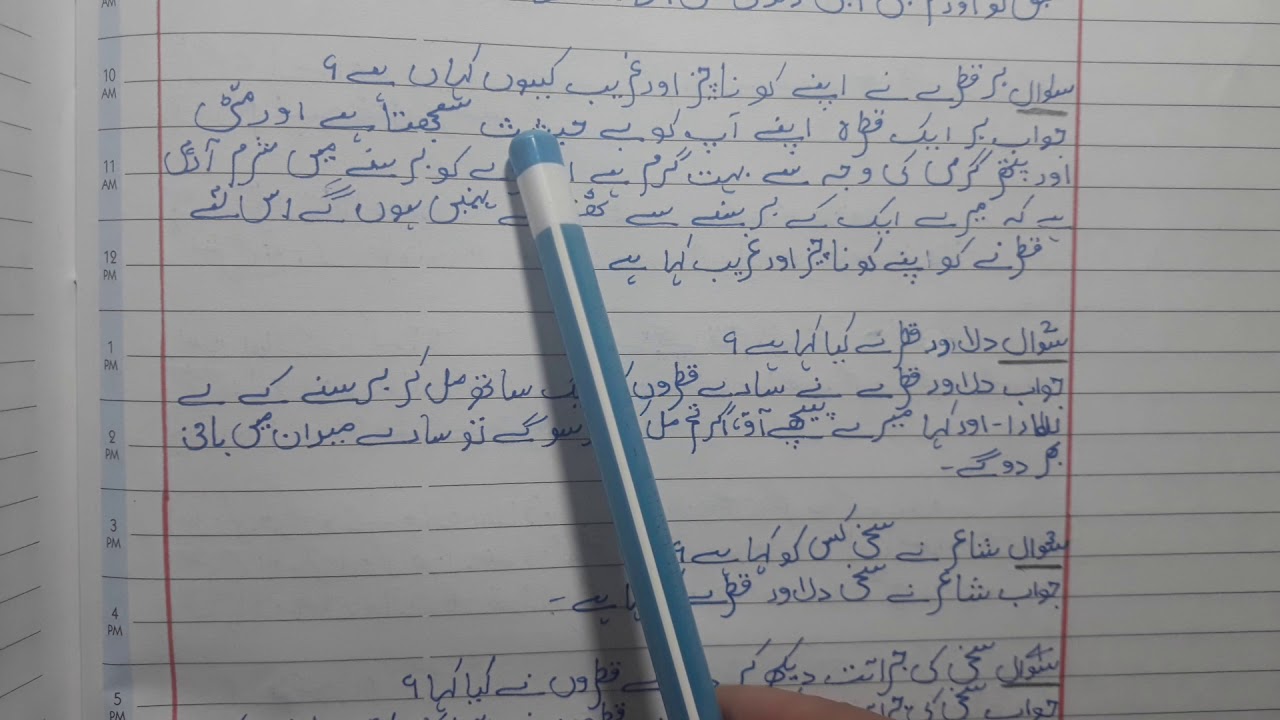 سوال ہر قطرے نے اپنے کو ناچیز اور غریب کیوں کہاں ہے ؟
جواب ہر ایک قطرہ اپنے آپ کو بے سمجھتا ہے اور مٹی
اور پتھر گرمی کی وجہ سے بہت گرم ہے کو برسنے میں شرم آتی
ہے کہ میرے ایک کے برسنے سے نہیں ہوں گے اس لئے
قطرنے کو اپنے کو ناچیز اور غریب کہا ہے
سوال 2 دلاور قطرے نے کیا کہا ہے ؟
جواب دلاور قطرے نے سارے قطروں ساتھ مل کر برسنے کے لے
للکارا - اور کہا میرے پیچھے آؤ، اگر تم مل گے تو سارے میدان میں پانی
بھر دو گے -
سوال 3 شاعر نے سخی کس کو کہا ہے ؟
جواب شاعر نے سخی دلاور قطرے ہے -
سوال 4 سخی کی جراتت دیکھ کر قطروں نے کیا کہا ؟
جواب سخی کی
10 AM
11 AM
12 PM
1 PM
2 PM
3 PM
4 PM
5 PM